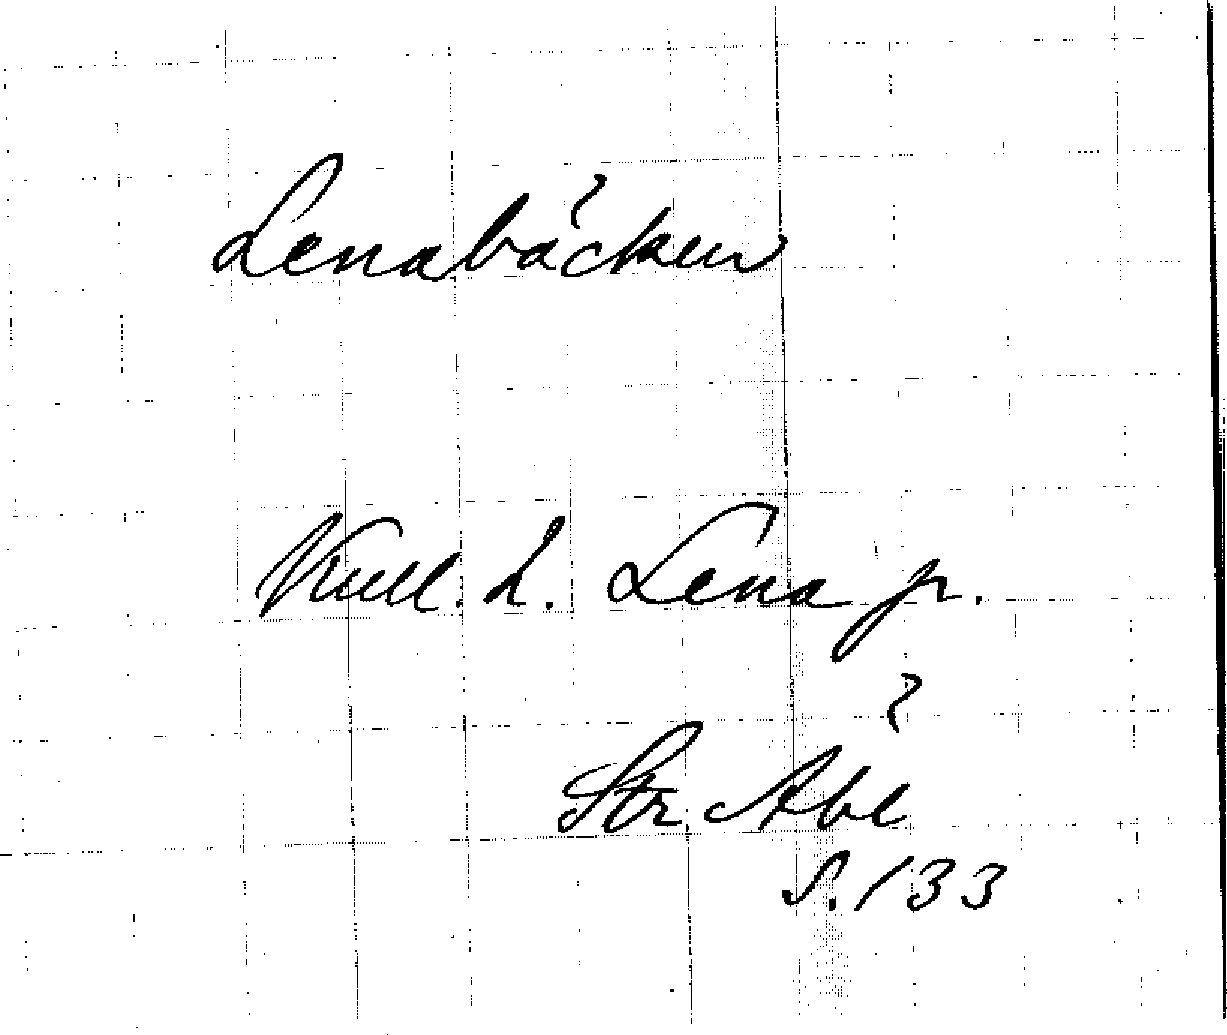 Lenabäcken
Kull. h. Lena p.
Str. Åbl
S. 133